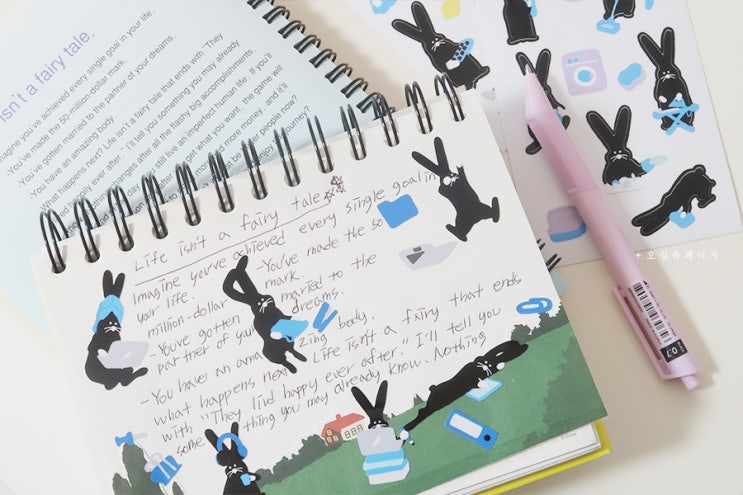 isn't a fairy tale.
magine you've achieved every single goal in your life.
-You've made the 50-million-dollar mark.
-You've gotten married to the partner of your dreams.
-You have an amazing body.
What happens next? Life isn't a fairy tale that ends with "They
ved happily ever after." I'll tell you something you may already
changes after all the flashy big accomplishments.
still live an imperfect human life. If you'll
get what you want - the game will
more money, and it'll
other people now?
journey?
Life isn't a fairy tale
Imagine you've achieved every single goal in
your life.
-You've made the 50
million-dollar mark.
-You've gotten married to the
partner of your dreams.
-You haver an amazing body.
what happens next Life isn't a fairy that ends
with "They liud happy ever after." I'll tell you
some thing you may already know. Nothing
+오십육페이지
0.7